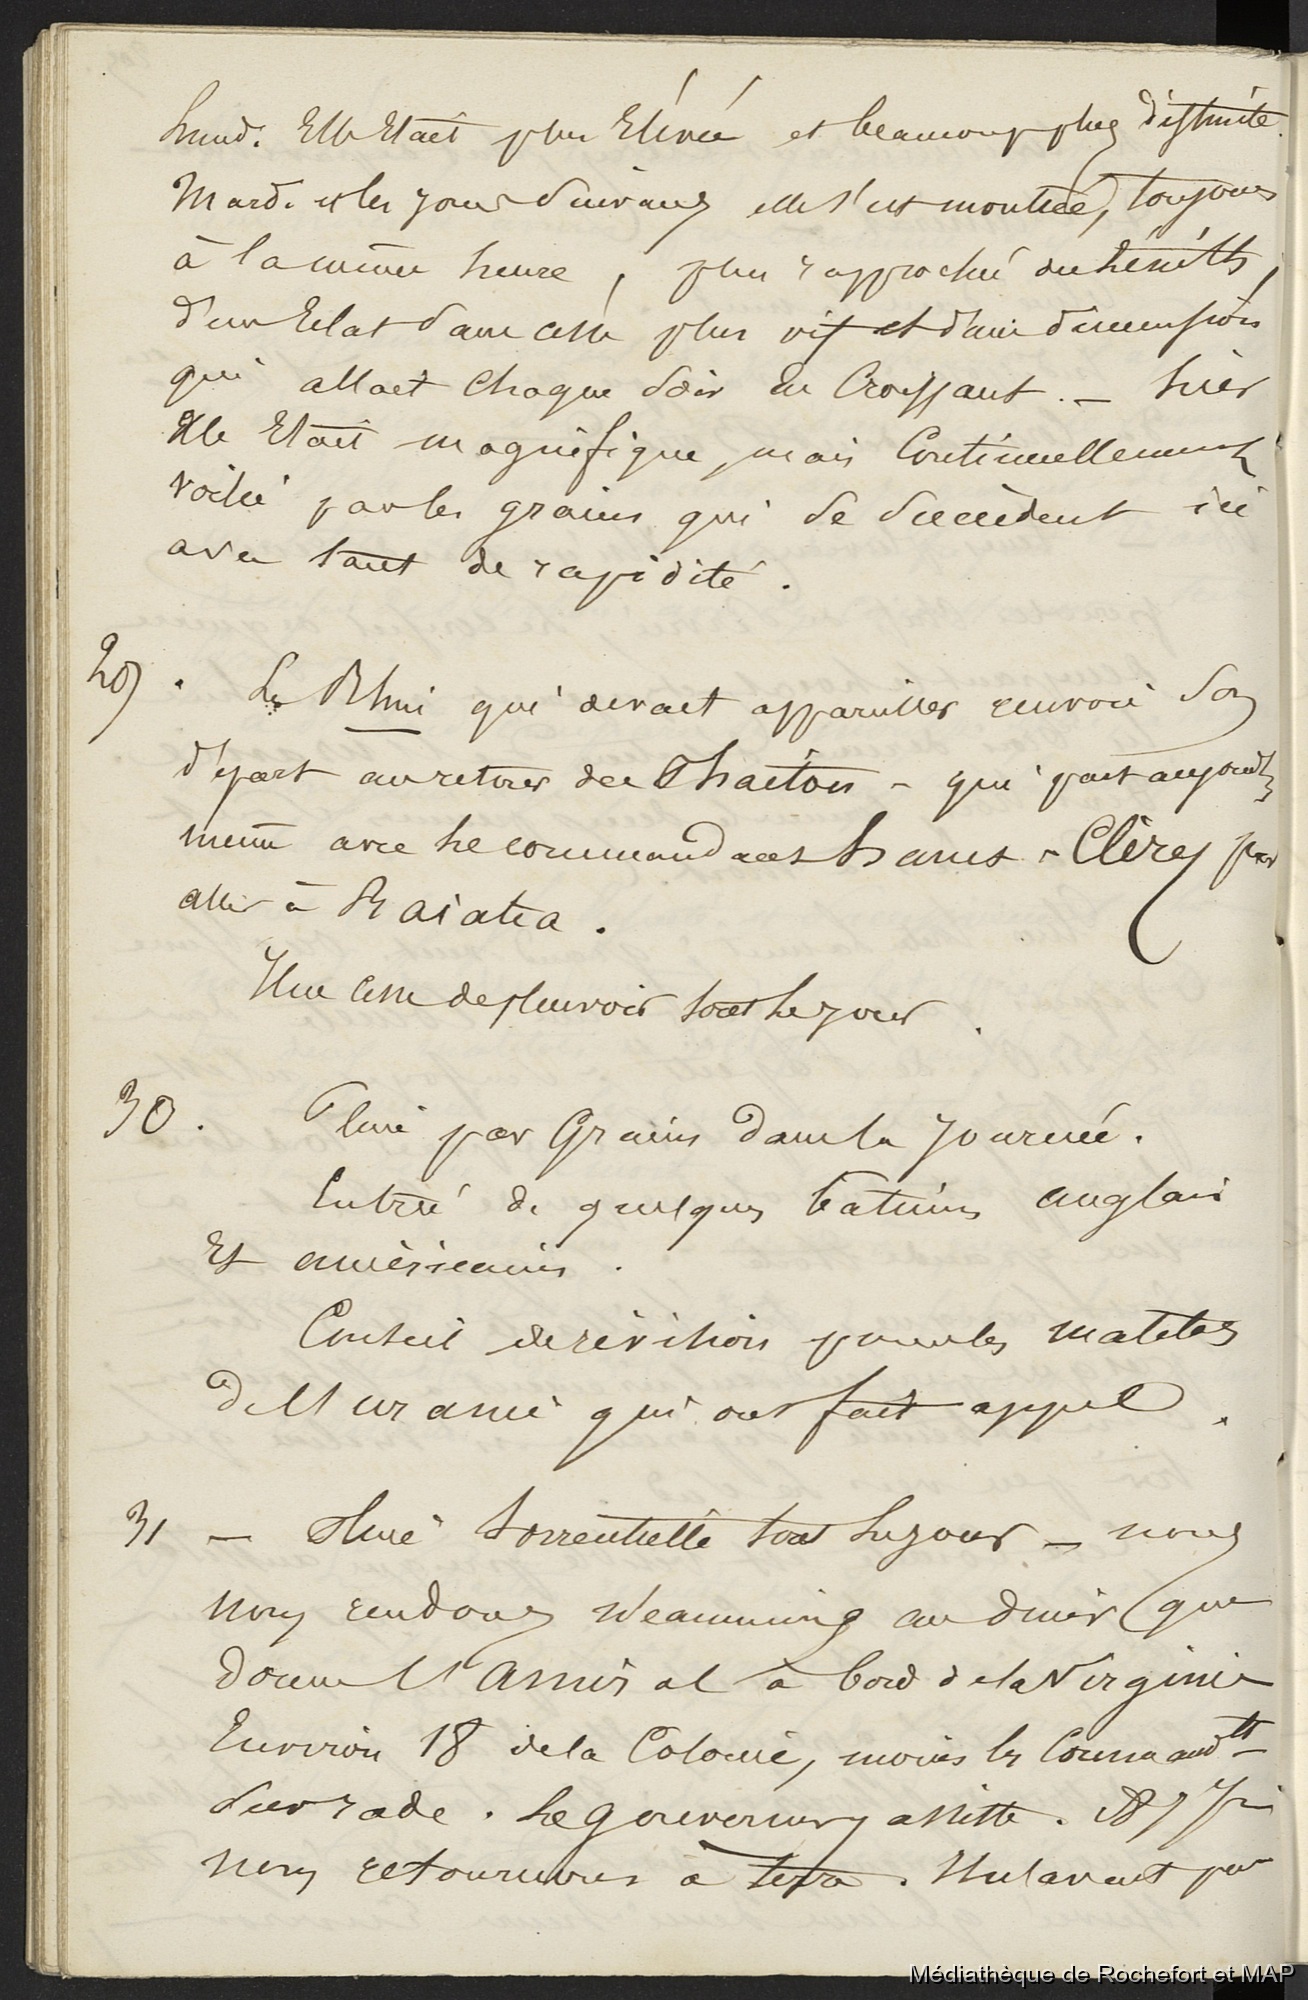 Lundi. Elle était plus élevée et beaucoup plus distincte.
Mardi et les jours suivans elle s'est montrée, toujours
à la même heure, plus rapproché du zénith,
d'un éclat sans cesse plus vif et d'une dimension
qui allait chaque soir en croissant. — hier
elle était magnifique, mais continuellement
voilée par les grains qui se succèdent ici
avec tant de rapidité.
29. Le Rhin qui devait appareiller renvoie son
départ au retour du Phaéton - qui part aujourd'h
même avec le commandant - Cléry pour
aller à Raiatea.
Il ne cesse de pleuvoir tout le jour.
30. Pluie par grains dans la journée.
Entrée de quelques batimens anglais
et américains.
Conseil de révision pour les matelots
de l'Uranie qui ont fait appel.
31 — Pluie torrentielle tout le jour — nous
nous rendons néanmoins au diner que
donne l'Amiral à bord de la Virginie
Environ 18 de la Colonie, moins les Commandts
sur rade. Le gouverneur y assiste.
nous retournons à terre. Il n'avait pas
Médiathèque de Rochefort et MAP